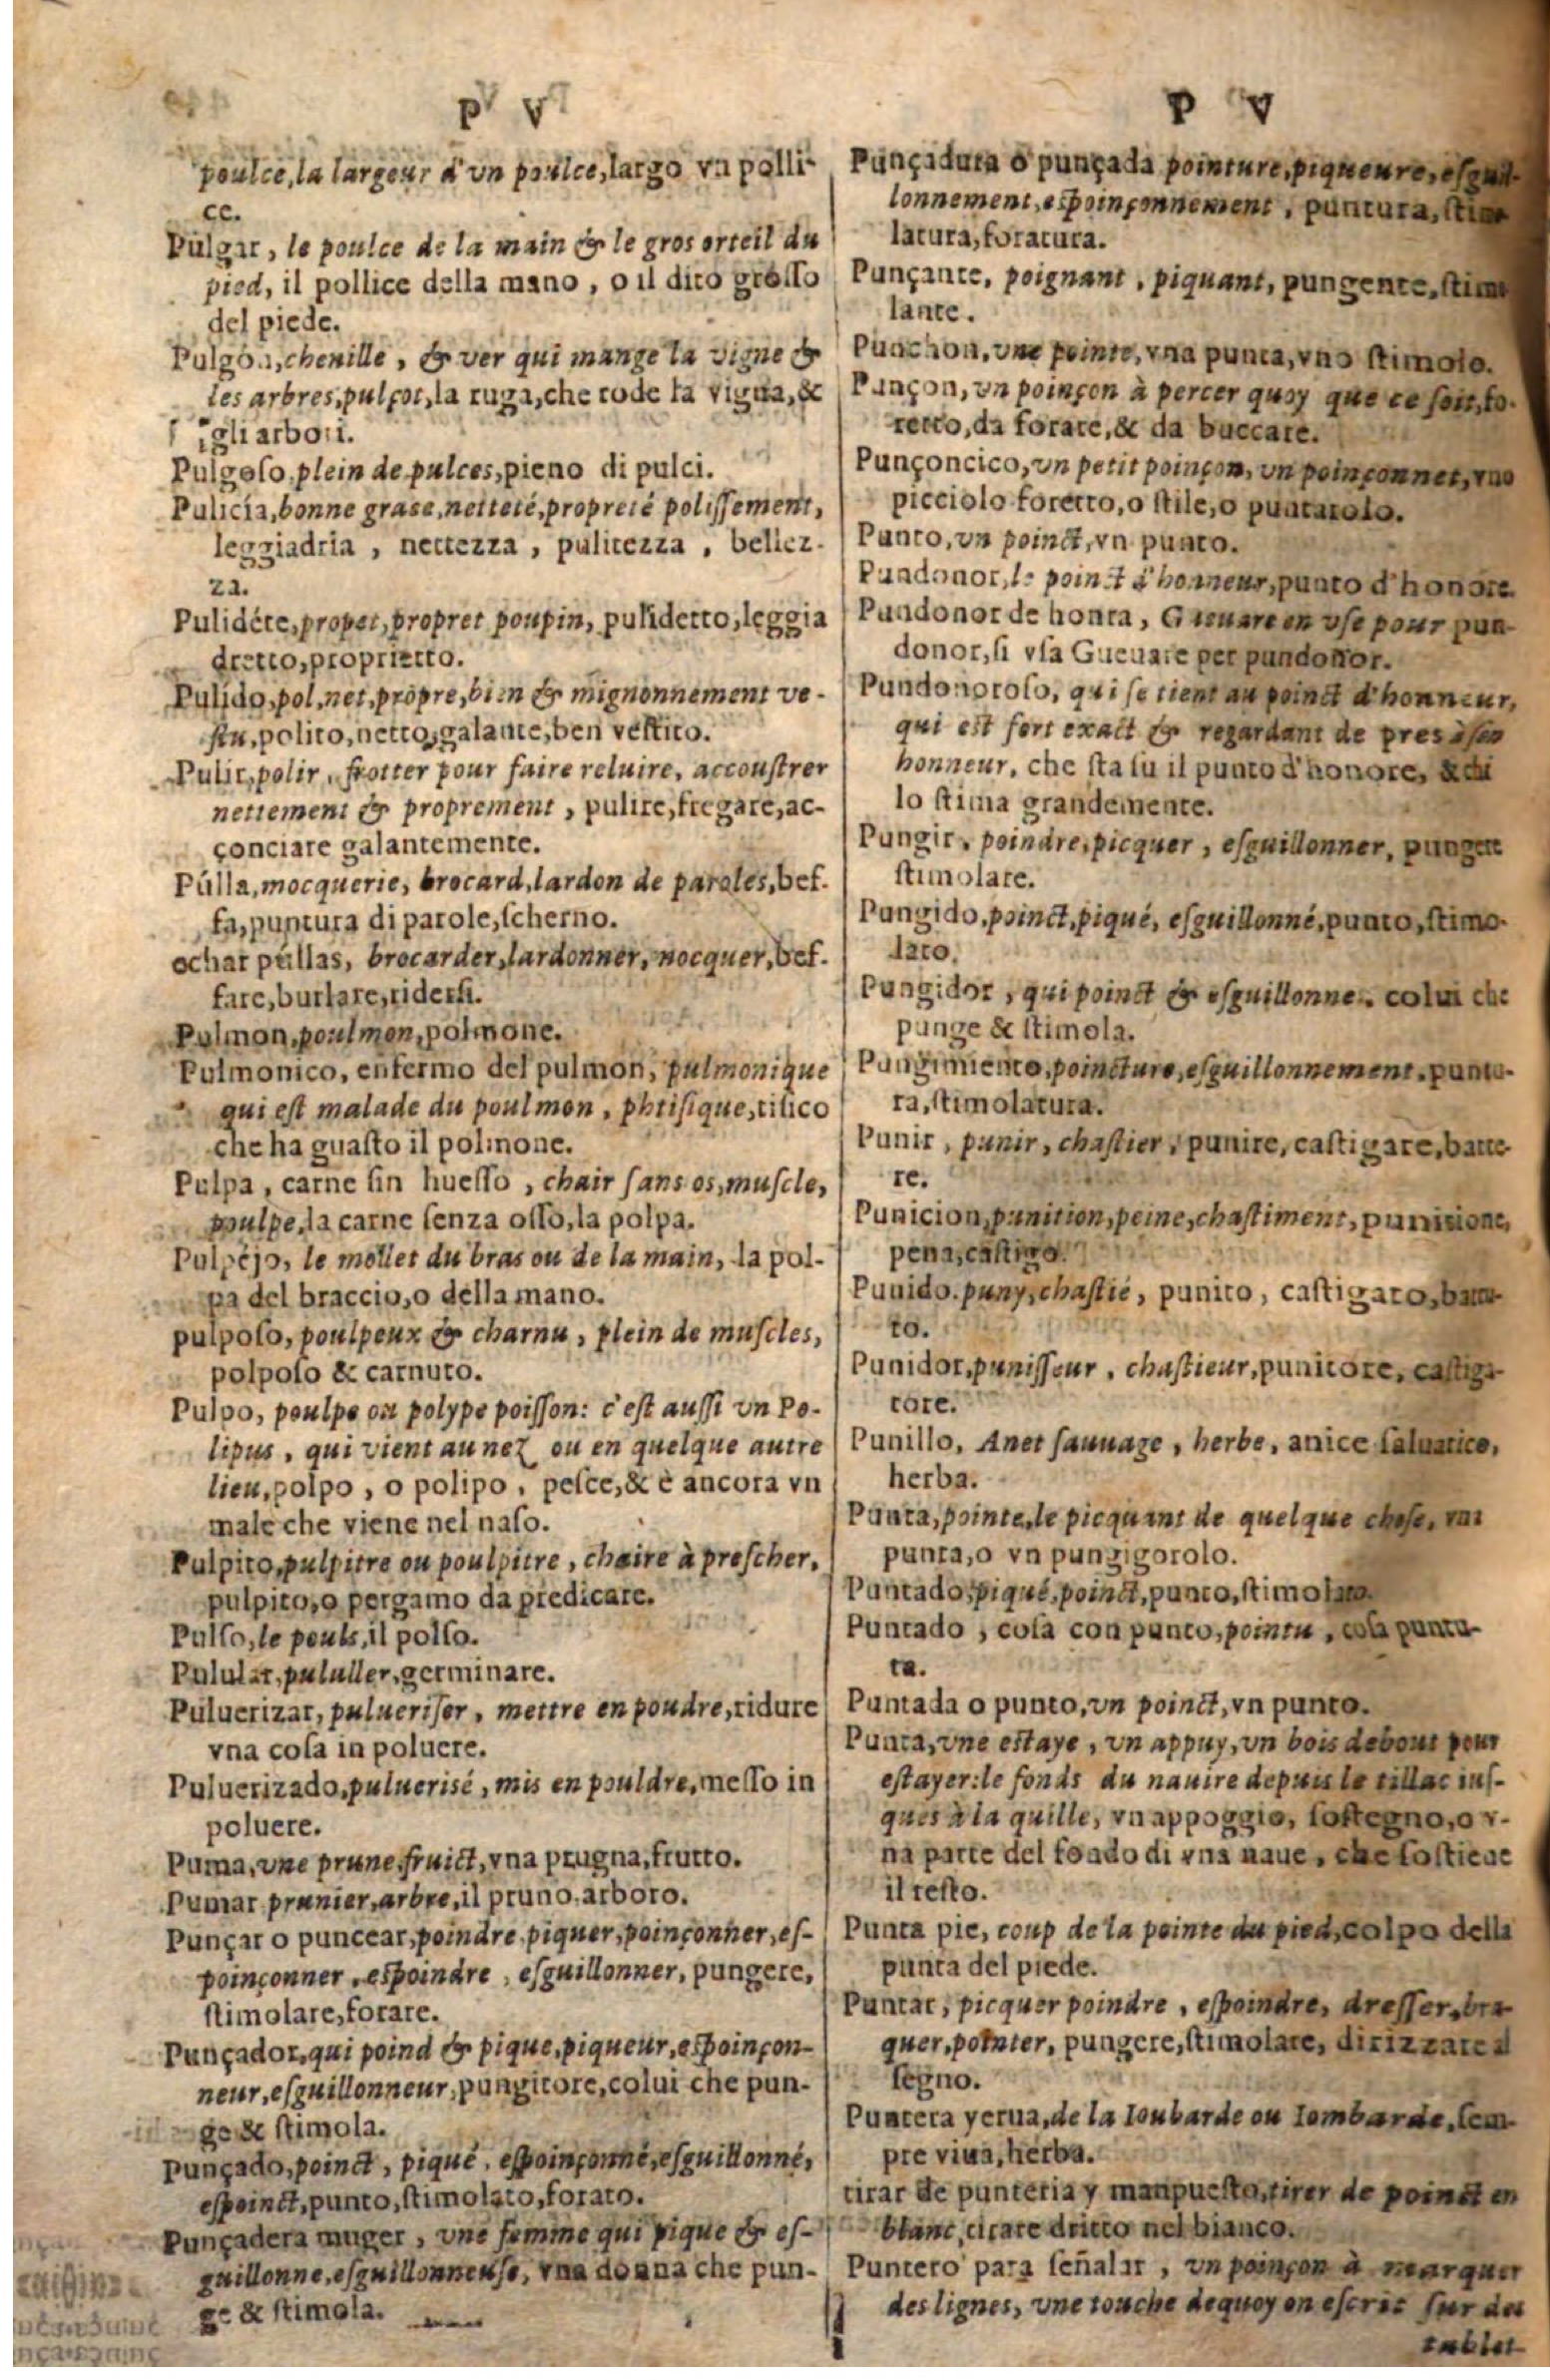 P V
poulce, la largeur d'vn poulce, largo vn polli-
ce.
Pulgar, le poulce de la main & le gros orteil du
pied, il pollice della mano, o il dito grosso
del piede.
Pulgón, chenille, & ver qui mange la vigne &
les arbres, pulçot, la ruga, che rode la vigna, &
gli arbori.
Pulgoso, plein de pulces, pieno di pulci.
Pulicía, bonne grase, netteté, propreté polissement,
leggiadria, nettezza, pulitezza, bellez-
za.
Pulidéte, propet, propret poupin, pulidetto, leggia
dretto, proprietto.
Pulido, pol, net, propre, bien & mignonnement ve-
stu, polito, netto, galante, ben vestito.
Pulir, polir, frotter pour faire reluire, accoustrer
nettement & proprement, pulire, fregare, ac-
conciare galantemente.
Púlla, mocquerie, brocard, lardon de paroles, bef-
fa, puntura di parole, scherno.
echar púllas, brocarder, lardonner, mocquer, bef-
fare, burlare, ridersi.
Pulmon, poulmon, polmone.
Pulmonico, enfermo del pulmon, pulmonique
qui est malade du poulmon, phtisique, tisico
che ha guasto il polmone.
Pulpa, carne sin huesso, chair sans os, muscle,
poulpe, la carne senza osso, la polpa.
Pulpéjo, le mollet du bras ou de la main, la pol-
pa del braccio, o della mano.
pulposo, poulpeux & charnu, plein de muscles,
polposo & carnuto.
Pulpo, poulpe ou polype poisson: c'est aussi vn Po-
lipus, qui vient au nez ou en quelque autre
lieu, polpo, o polipo, pesce, & è ancora vn
male che viene nel naso.
Pulpito, pulpitre ou poulpitre, chaire à prescher,
pulpito, o pergamo da predicare.
Pulso, le pouls, il polso.
Pulular, pululler, germinare.
Puluerizar, pulueriser, mettre en poudre, ridure
vna cosa in poluere.
Puluerizado, puluerisé, mis en pouldre, messo in
poluere.
Puma, vne prune, fruict, vna prugna, frutto.
Pumar prunier, arbre, il pruno, arboro.
Punçar o puncear, poindre piquer, poinçonner, es-
poinçonner, espoindre, esguillonner, pungere,
stimolare, forare.
Punçador, qui poind & pique, piqueur, espoinçon-
neur, esguillonneur, pungitore, colui che pun-
ge & stimola.
Punçado, poinct, piqué, espoinçonné, esguillonné,
espoinct, punto, stimolato, forato.
Punçadera muger, vne femme qui pique & es-
guillonne, esguillonneuse, vna donna che pun-
ge & stimola.
P V
Punçadura o punçada pointure, piqueure, esguil-
lonnement, espoinçonnement, puntura, stimo
latura, foratura.
Punçante, poignant, piquant, pungente, stimo
lante.
Punchon, vne pointe, vna punta, vno stimolo.
Punçon, vn poinçon à percer quoy que ce soit, fo-
retto, da forare, & da buccare.
Punçoncico, vn petit poinçon, vn poinçonnet, vno
picciolo foretto, o stile, o puntarolo.
Punto, vn poinct, vn punto.
Pundonor, le poinct d'honneur, punto d'honore.
Pundonor de honra, Gueuare en vse pour pun-
donor, si vsa Gueuare per pundonor.
Pundonoroso, qui se tient au poinct d'honneur,
qui est fort exact & regardant de pres à son
honneur, che sta su il punto d'honore, & chi
lo stima grandemente.
Pungir, poindre, picquer, esguillonner, pungere
stimolare.
Pungido, poinct, piqué, esguillonné, punto, stimo-
lato.
Pungidor, qui poinct & esguillonne, colui che
punge & stimola.
Pungimiento, poincture, esguillonnement, puntu-
ra, stimolatura.
Punir, punir, chastier, punire, castigare, batte-
re.
Punicion, punition, peine, chastiment, punitione,
pena, castigo.
Punido, puny, chastié, punito, castigato, battu-
to.
Punidor, punisseur, chastieur, punitore, castiga-
tore.
Punillo, Anet sauuage, herbe, anice saluatico,
herba.
Punta, pointe, le picquant de quelque chose, vna
punta, o vn pungigorolo.
Puntado, piqué, poinct, punto, stimolato.
Puntado, cosa con punto, pointu, cosa puntu-
ta.
Puntada o punto, vn poinct, vn punto.
Punta, vne estaye, vn appuy, vn bois debout pour
estayer: le fonds du nauire depuis le tillac ius-
ques à la quille, vn appoggio, sostegno, o v-
na parte del fondo di vna naue, che sostiene
il resto.
Punta pie, coup de la pointe du pied, colpo della
punta del piede.
Puntar, picquer poindre, espoindre, dresser, bra-
quer, pointer, pungere, stimolare, dirizzare al
segno.
Puntera yerua, de la Ioubarde ou Iombarde, sem-
pre viua, herba.
tirar de punteria y manpuesto, tirer de poinct en
blanc, tirare dritto nel bianco.
Puntero para señalar, vn poinçon à marquer
des lignes, vne touche dequoy on escrit sur des
tablet-